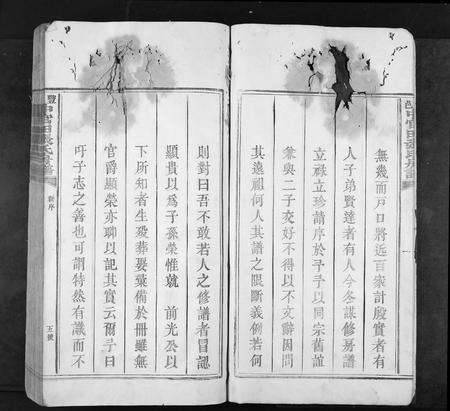 無幾而戸口將近百家計殷實者有
人子弟賢達者有人今冬謀修房譜
立祿立珍請序於予予以同宗舊誼
兼與二子交好不得以不文辭因問
其遠祖何人其譜之限斷義例若何
則對曰吾不敢若人之修譜者冒認
顯貴以為子孫榮惟就 前光公以
下所知者生殁葬娶彙備於冊雖無
官爵顯榮亦聊以記其實云爾予曰
吁子志之善也可謂特然有識而不
新序
五號